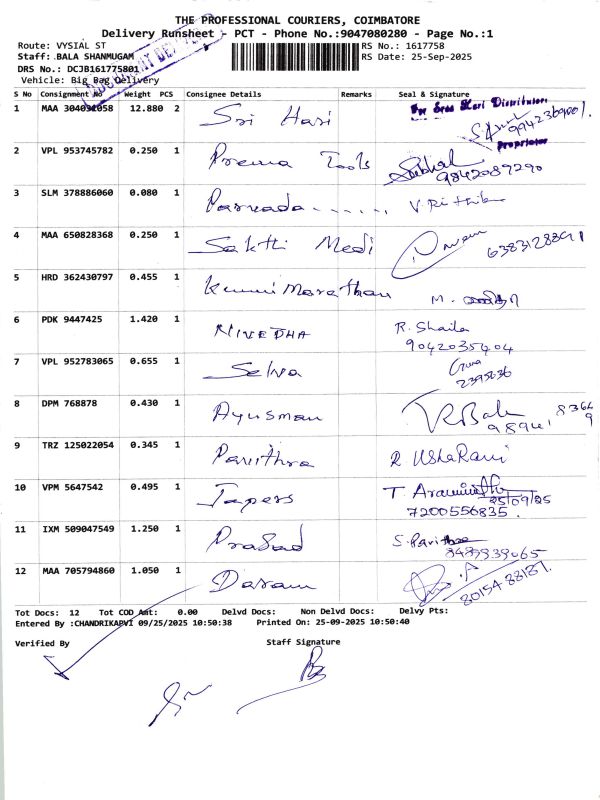 THE PROFESSIONAL COURIERS, COIMBATORE
Delivery Runsheet - PCT - Phone No.:9047080280 - Page No.:1
Route: VYSIAL ST RS No.: 1617758
Staff: BALA SHANMUGAM RS Date: 25-Sep-2025
DRS No.: DCJB161775801
Vehicle: Big Bag Delivery
S No Consignment No Weight PCS Consignee Details Remarks Seal & Signature
1 MAA 304031058 12.880 2 Sri Hari For Sree Hari Distributors
Proprietor
2 VPL 953745782 0.250 1 Prema Tools 9842089290
3 SLM 378886060 0.080 1 V. Rithik
4 MAA 650828368 0.250 1 Sakthi Medi
5 HRD 362430797 0.455 1 M.
6 PDK 9447425 1.420 1 NIVEDHA R. Shaila
9042035404
7 VPL 952783065 0.655 1 Selva
8 DPM 768878 0.430 1 Ayusman
9 TRZ 125022054 0.345 1 Pavithra R UshaRani
10 VPM 5647542 0.495 1 Tapers T 25/09/25
7200556835.
11 IXM 509047549 1.250 1 Prasad S. Pavithra
12 MAA 705794860 1.050 1
Tot Docs: 12 Tot COD Amt: 0.00 Delvd Docs: Non Delvd Docs: Delvy Pts:
Entered By :CHANDRIKAPVI 09/25/2025 10:50:38 Printed On: 25-09-2025 10:50:40
Verified By Staff Signature